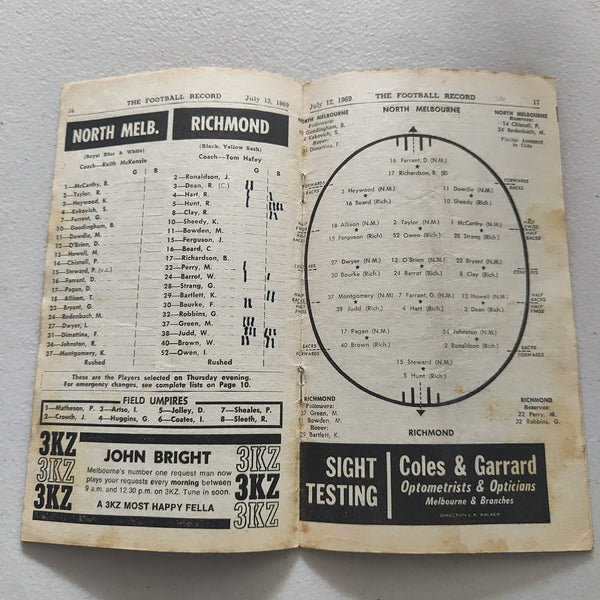 16 THE FOOTBALL RECORD July 12, 1969
NORTH MELB.
(Royal Blue & White)
Coach—Keith McKenzie
G B
1—McCarthy, B.
2—Taylor, R.
3—Heywood, K.
4—Kekovich, S.
7—Farrant, G.
10—Goodingham, B.
11—Dowdle, M.
12—O'Brien, D.
13—Howell, M.
14—Chisnall, P.
15—Steward, P. (v.c.)
16—Farrant, D.
17—Pagan, D.
18—Allison, T.
22—Bryant, G.
24—Redenbach, M.
27—Dwyer, L.
31—Dimattina, F.
34—Johnston, R.
37—Montgomery, K.
Rushed
RICHMOND
(Black, Yellow Sash)
Coach—Tom Hafey
G B
2—Ronaldson, J.
3—Dean, R. (C.)
4—Hart, R.
5—Hunt, R.
8—Clay, R.
10—Sheedy, K.
11—Bowden, M.
15—Ferguson, J.
16—Beard, C.
17—Richardson, B.
22—Perry, M.
24—Barrot, W.
28—Strang, G.
29—Bartlett, K.
30—Bourke, F.
32—Robins, G.
37—Green, M.
38—Judd, W.
40—Brown, K.
52—Owen, I.
Rushed
These are the Players selected on Thursday evening.
For emergency changes, see complete lists on Page 10.
FIELD UMPIRES
1—Matheson, P. 3—Artso, I. 5—Jolley, D. 7—Sheales, P.
2—Crouch, J. 4—Huggins, G. 6—Coates, I. 8—Sleeth, R.
3KZ
3KZ
3KZ
JOHN BRIGHT
Melbourne's number one request man now
plays your requests every morning between
9 a.m. and 12.30 p.m. on 3KZ. Tune in soon.
A 3KZ MOST HAPPY FELLA
3KZ
3KZ
3KZ
July 12, 1969 THE FOOTBALL RECORD 17
NORTH MELBOURNE
NORTH MELBOURNE
Followers:
10 Goodingham, B.
4 Kekovich, S.
Rover:
Dimattina, F.
NORTH MELBOURNE
Reserves:
14 Chisnall, P.
24 Redenbach, M.
Players Announced
in Clubs
16 Farrant, D. (N.M.)
17 Richardson, B. (R)
FORWARDS
BACKS
3 Heywood (N.M.)
16 Beard (Rich.)
11 Dowdle (N.M.)
10 Sheedy (Rich.)
FORWARDS
BACKS
18 Allison (N.M.)
15 Ferguson (Rich.)
2 Taylor, (N.M.)
52 Owen (Rich.)
1 McCarthy (N.M.)
28 Strang (Rich.)
HALF
FWDS
HALF
BACKS
27 Dwyer (N.M.)
30 Bourke (Rich.)
12 O'Brien (N.M.)
24 Barrot (Rich.)
22 Bryant (N.M.)
8 Clay (Rich.)
CENTRES
37 Montgomery (N.M.)
38 Judd, (Rich.)
7 Farrant, G. (N.M.)
4 Hart (Rich.)
13 Howell (N.M.)
3 Dean (Rich.)
HALF
BACKS
HALF
FWDS
17 Pagan (N.M.)
40 Brown (Rich.)
34 Johnston (N.M.)
2 Ronaldson (Rich.)
BACKS
FORWARDS
BACKS
FORWARDS
15 Steward (N.M.)
5 Hunt (Rich.)
RICHMOND
Followers:
37 Green, M.
Bowden, M.
Rover:
29 Bartlett, K.
RICHMOND
RICHMOND
Reserves:
22 Perry, M.
32 Robins, G.
SIGHT
TESTING
Coles & Garrard
Optometrists & Opticians
Melbourne & Branches
DIRECTION J. K. WALKER